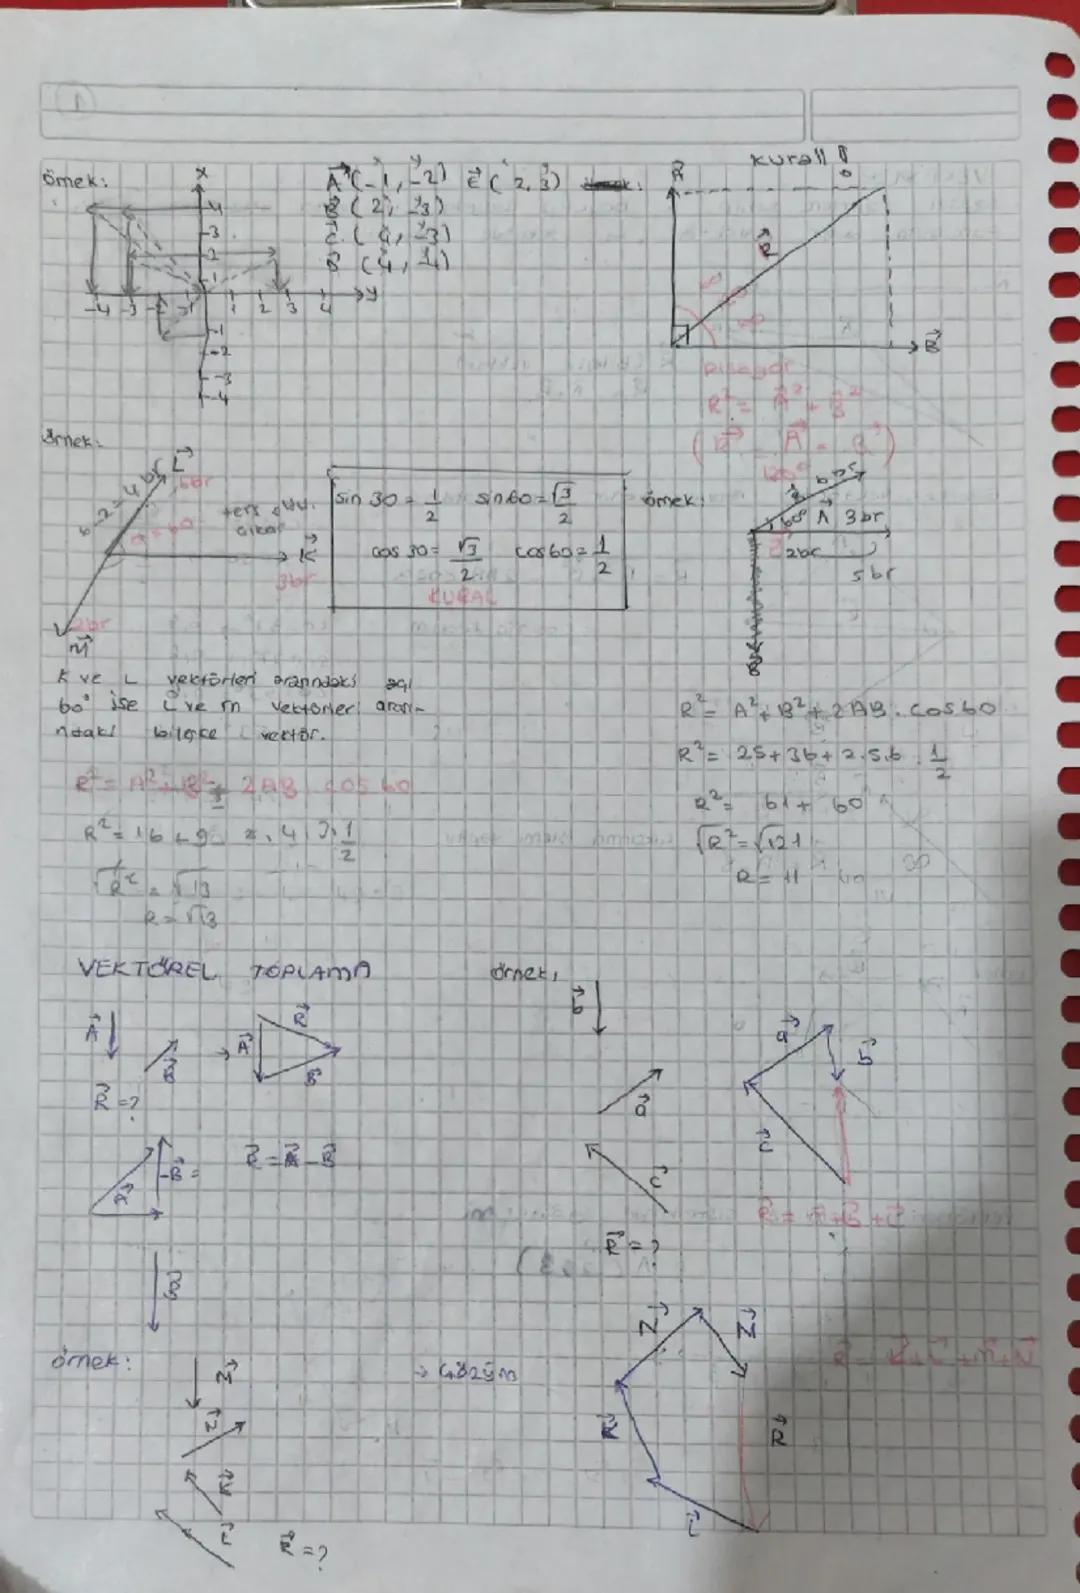 1
örnek:
X
A (-1, -2) C ( 2, 3)
B ( 2, -3)
C ( 4, -3)
D (4, 4)
4
3
2
1
-4 -3 -2 -1 1 2 3 4 y
-1
-2
-3
-4
kural!
A
R
B
pisagor
R² = A² + B²
örnek:
L
6br
6-2=4br
α=60
ters
K
3br
2br
M
sin 30 = 1/2 sin 60 = √3/2
cos 30 = √3/2 cos 60 = 1/2
KURAL
örnek:
120°
B 6br
60° A 3br
2br
5br
K ve L vektörleri arasındaki açı
60° ise L ve m vektörleri arası-
ndaki bileşke vektör.
R² = A² + B² + 2AB . cos 60
R² = 16 + 9 2 . 4 3 . 1/2
√R² = √13
R = √13
R² = A² + B² + 2AB . cos 60
R² = 25 + 36 + 2.5.6 . 1/2
R² = 61 + 60
√R² = √121
R = 11
VEKTÖREL TOPLAMA
A
B
R = ?
→ A R B
A -B =
R = A - B
B
örnek:
b
a
c
R = ?
a b
c
R = A + B + C
örnek:
M
N
K
L
R = ?
→ Çözüm
N
K
L
R
R = K + L + M + N